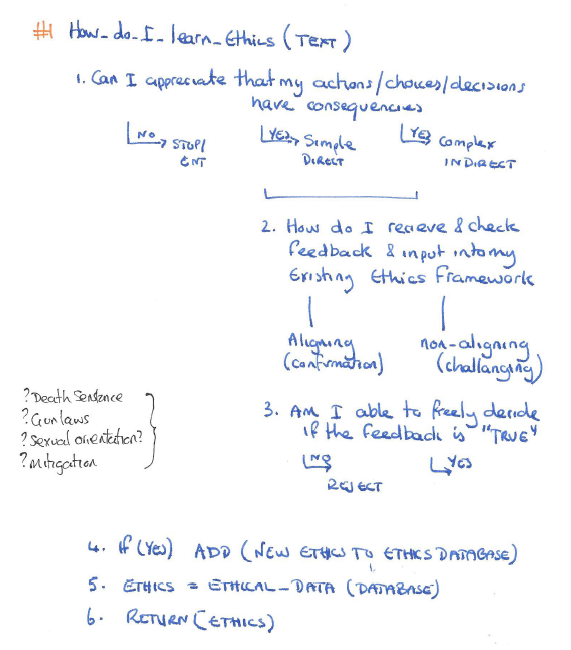 #1 How_do_I_learn_Ethics (TEXT)
1. Can I appreciate that my actions/choices/decisions
have consequencies
NO STOP/ YES Simple YES Complex
ENT DIRECT INDIRECT
2. How do I recieve & check
feedback & input into my
Existing Ethics Framework
Aligning non-aligning
(confirmation) (challanging)
?Death Sentence
?Gun laws
?Sexual orientation?
?Mitigation
3. Am I able to freely decide
if the feedback is "TRUE"
NO YES
REJECT
4. if (Yes) ADD (NEW ETHICS TO ETHICS DATABASE)
5. ETHICS = ETHICAL_DATA (DATABASE)
6. RETURN (ETHICS)